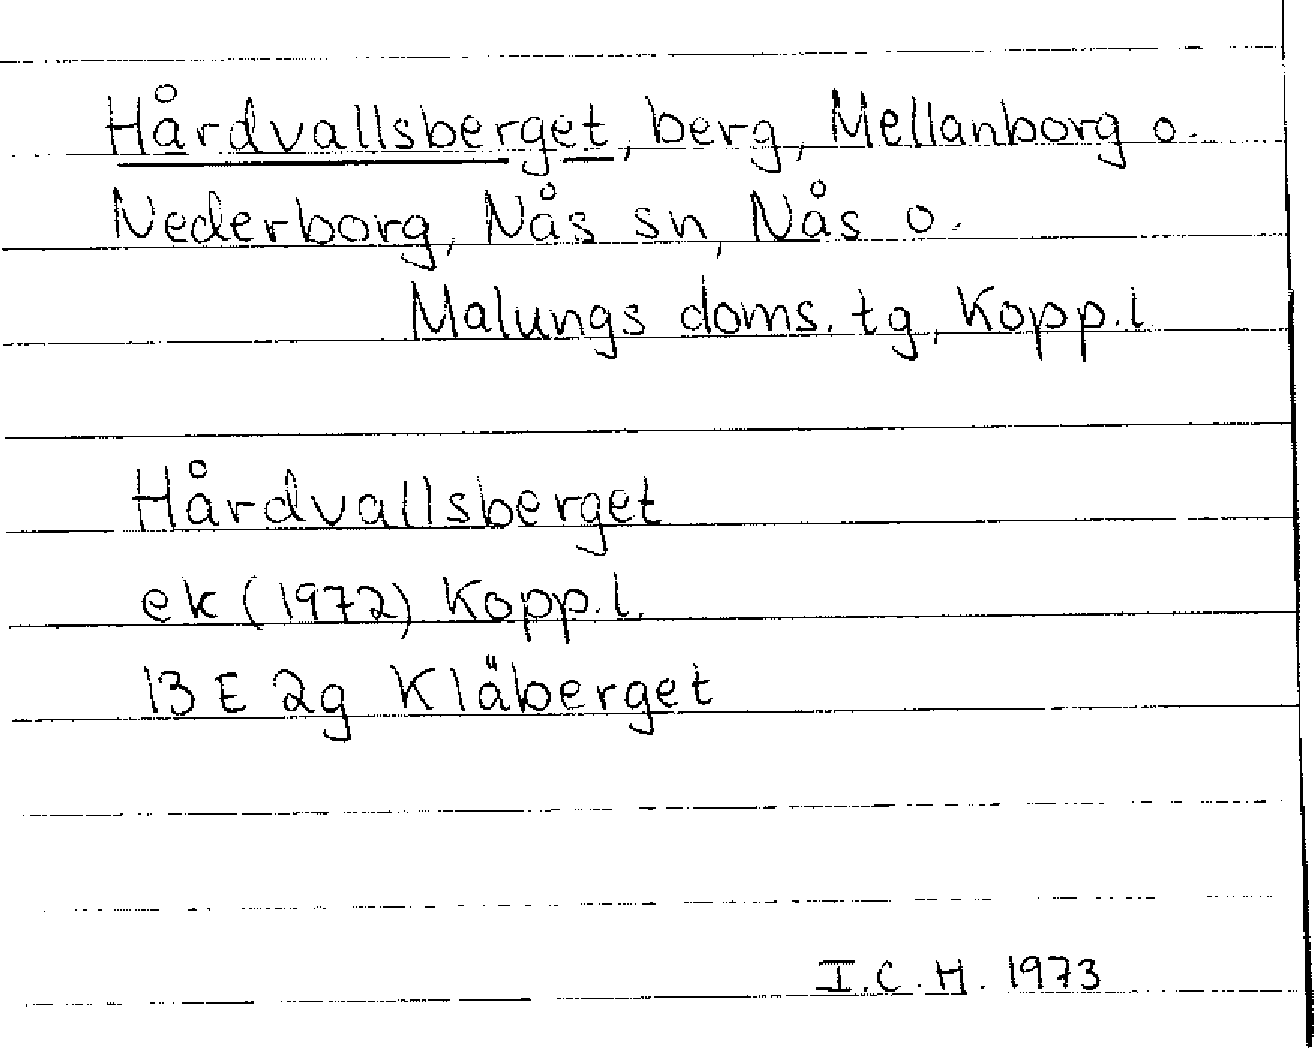 Hårdvallsberget, berg, Mellanborg o.
Nederborg, Nås sn, Nås o.
Malungs doms. tg, Kopp.l
Hårdvallsberget
ek (1972) Kopp.l.
13 E 2g Kläberget
I.C.H. 1973